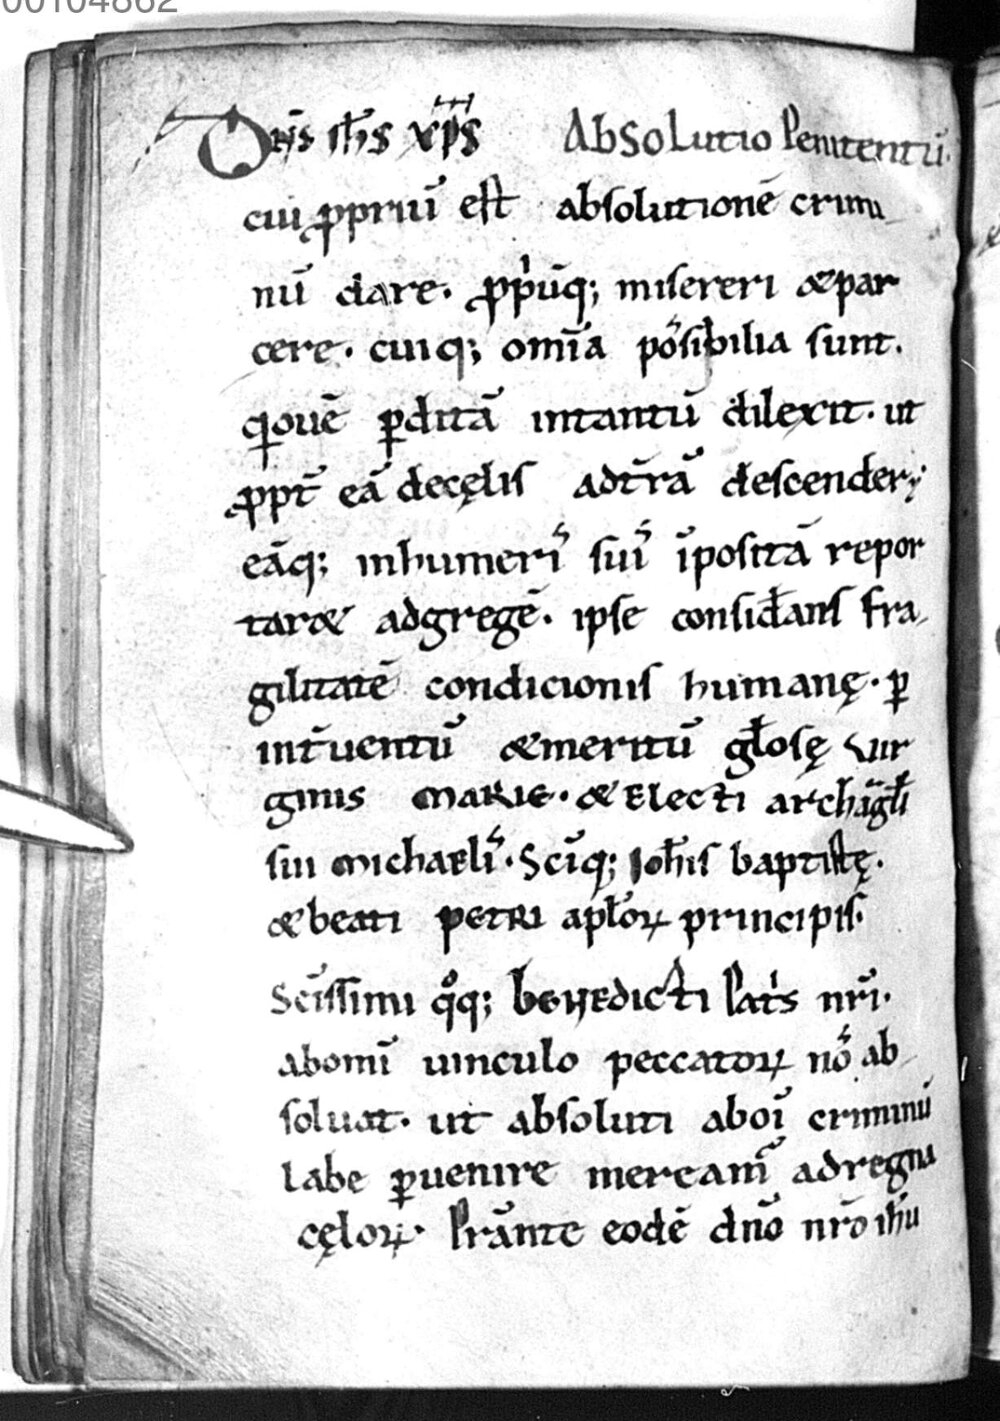 00104862
Dn̄s ih̄s xp̄s Absolutio Penitentū.
cui ꝓpriū est absolutionē crimi
nū dare. ꝓp̓ūq; misereri & par
cere. cuiq; om̄ia possibilia sunt.
q ouē ꝑditā intantū dilexit. ut
ꝓpt̄ eā decęlis adt̄rā descender&
eāq; inhumeris suis īpositā repor
tar& adgregē. ipse considans fra
gilitatē condicionis humanę. ꝑ
int̄uentū & meritū gl̄osę vir
ginis MARIE. & Electi archāgl̄i
sui michaelis. Scīq; Joh̄is baptistę.
& beati PETRI apl̄oꝝ principis.
Scīssimi qͦq; benedicti Pat̓s nr̄i.
abomī uinculo peccatoꝝ nos ab
soluat. ut absoluti aboī criminū
labe ꝑuenire mereamur adregna
cęloꝝ. Prānte eodē dn̄o nr̄o ih̄u